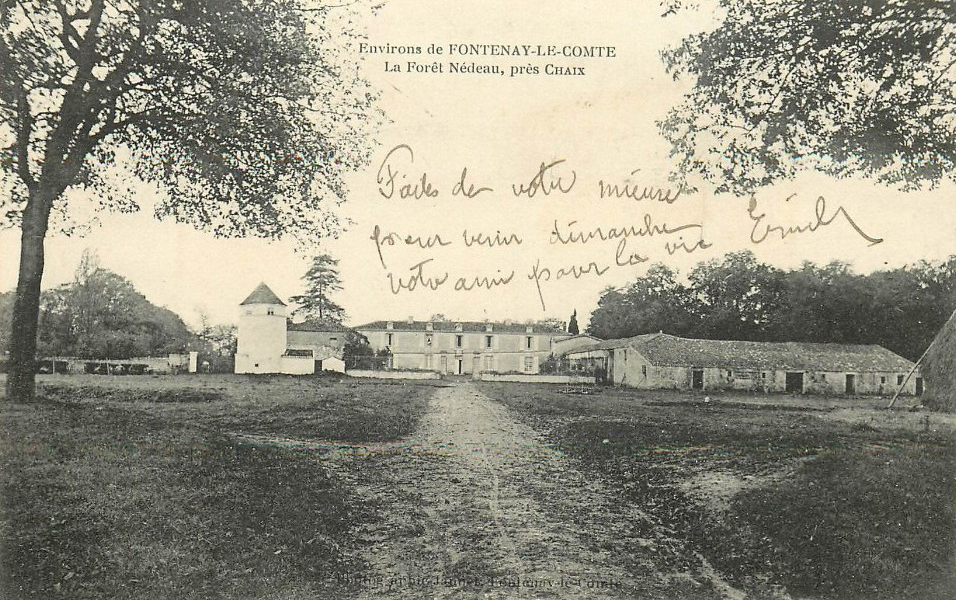 Environs de FONTENAY-LE-COMTE
La Forêt Nédeau, près CHAIX
Faites de votre mieux
pour venir dimanche
votre ami pour la vie
Photographie Fontenay-le-Comte